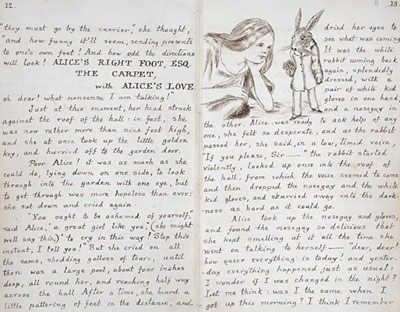 12.
"they must go by the carrier," she thought,
"and how funny it'll seem, sending presents
to one's own feet! And how odd the directions
will look! ALICE'S RIGHT FOOT, ESQ.
THE CARPET,
with ALICE'S LOVE
oh dear! what nonsense I am talking!"
Just at this moment, her head struck
against the roof of the hall: in fact, she
was now rather more than nine feet high,
and she at once took up the little golden
key, and hurried off to the garden door.
Poor Alice! it was as much as she
could do, lying down on one side, to look
through into the garden with one eye, but
to get through was more hopeless than ever:
she sat down and cried again.
"You ought to be ashamed of yourself,"
said Alice, "a great girl like you," (she might
well say this,) "to cry in this way! Stop this
instant, I tell you!" But she cried on all
the same, shedding gallons of tears, until
there was a large pool, about four inches
deep, all round her, and reaching half way
across the hall. After a time, she heard a
little pattering of feet in the distance, and
13.
dried her eyes to
see what was coming.
It was the white
rabbit coming back
again, splendidly
dressed, with a
pair of white kid
gloves in one hand,
and a nosegay in
the other. Alice was ready to ask help of any
one, she felt so desperate, and as the rabbit
passed her, she said, in a low, timid voice,
"If you please, Sir—" the rabbit started
violently, looked up once into the roof of
the hall, from which the voice seemed to come,
and then dropped the nosegay and the white
kid gloves, and skurried away into the dark-
ness as hard as it could go.
Alice took up the nosegay and gloves,
and found the nosegay so delicious that
she kept smelling at it all the time she
went on talking to herself— "dear, dear!
how queer everything is today! and yester-
day everything happened just as usual:
I wonder if I was changed in the night?
Let me think: was I the same when I
got up this morning? I think I remember